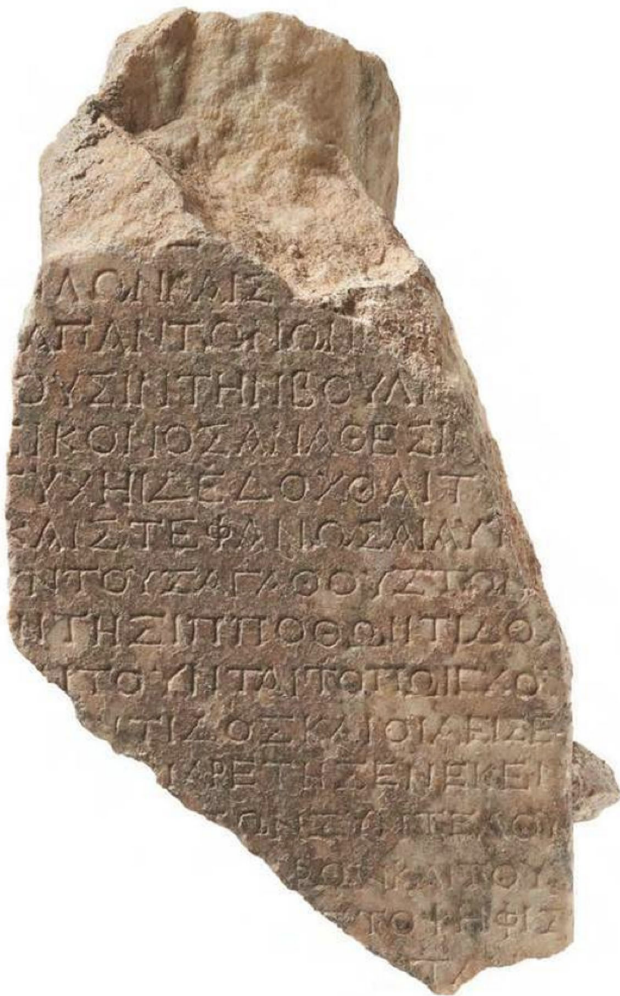 ΛΩΝΚΑΙΣ
ΑΠΑΝΤΩΝΩΝ
ΟΥΣΙΝΤΗΝΒΟΥΛ
ΙΚΟΝΟΣΑΝΑΘΕΣΙ
ΥΧΗΙΔΕΔΟΧΘΑΙΤ
ΚΑΙΣΤΕΦΑΝΩΣΑΙΑΥ
ΝΤΟΥΣΑΓΑΘΟΥΣΤΩ
ΝΤΗΣΙΠΠΟΘΩΝΤΙΔΟ
ΙΤΟΥΝΤΑΙΤΟΠΩΙΕ
ΝΤΙΔΟΣΚΑΙΟΙΑΕΙΣΕ
ΑΡΕΤΗΣΕΝΕΚΕΝ
ΩΝΣΥΝΤΕΛΟΥ
ΚΑΙΤΟΥ
ΤΟΨΗΦΙΣ
ΤΑ